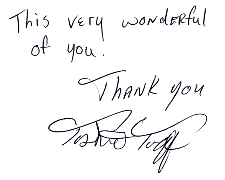 This very wonderful
of you.
Thank you